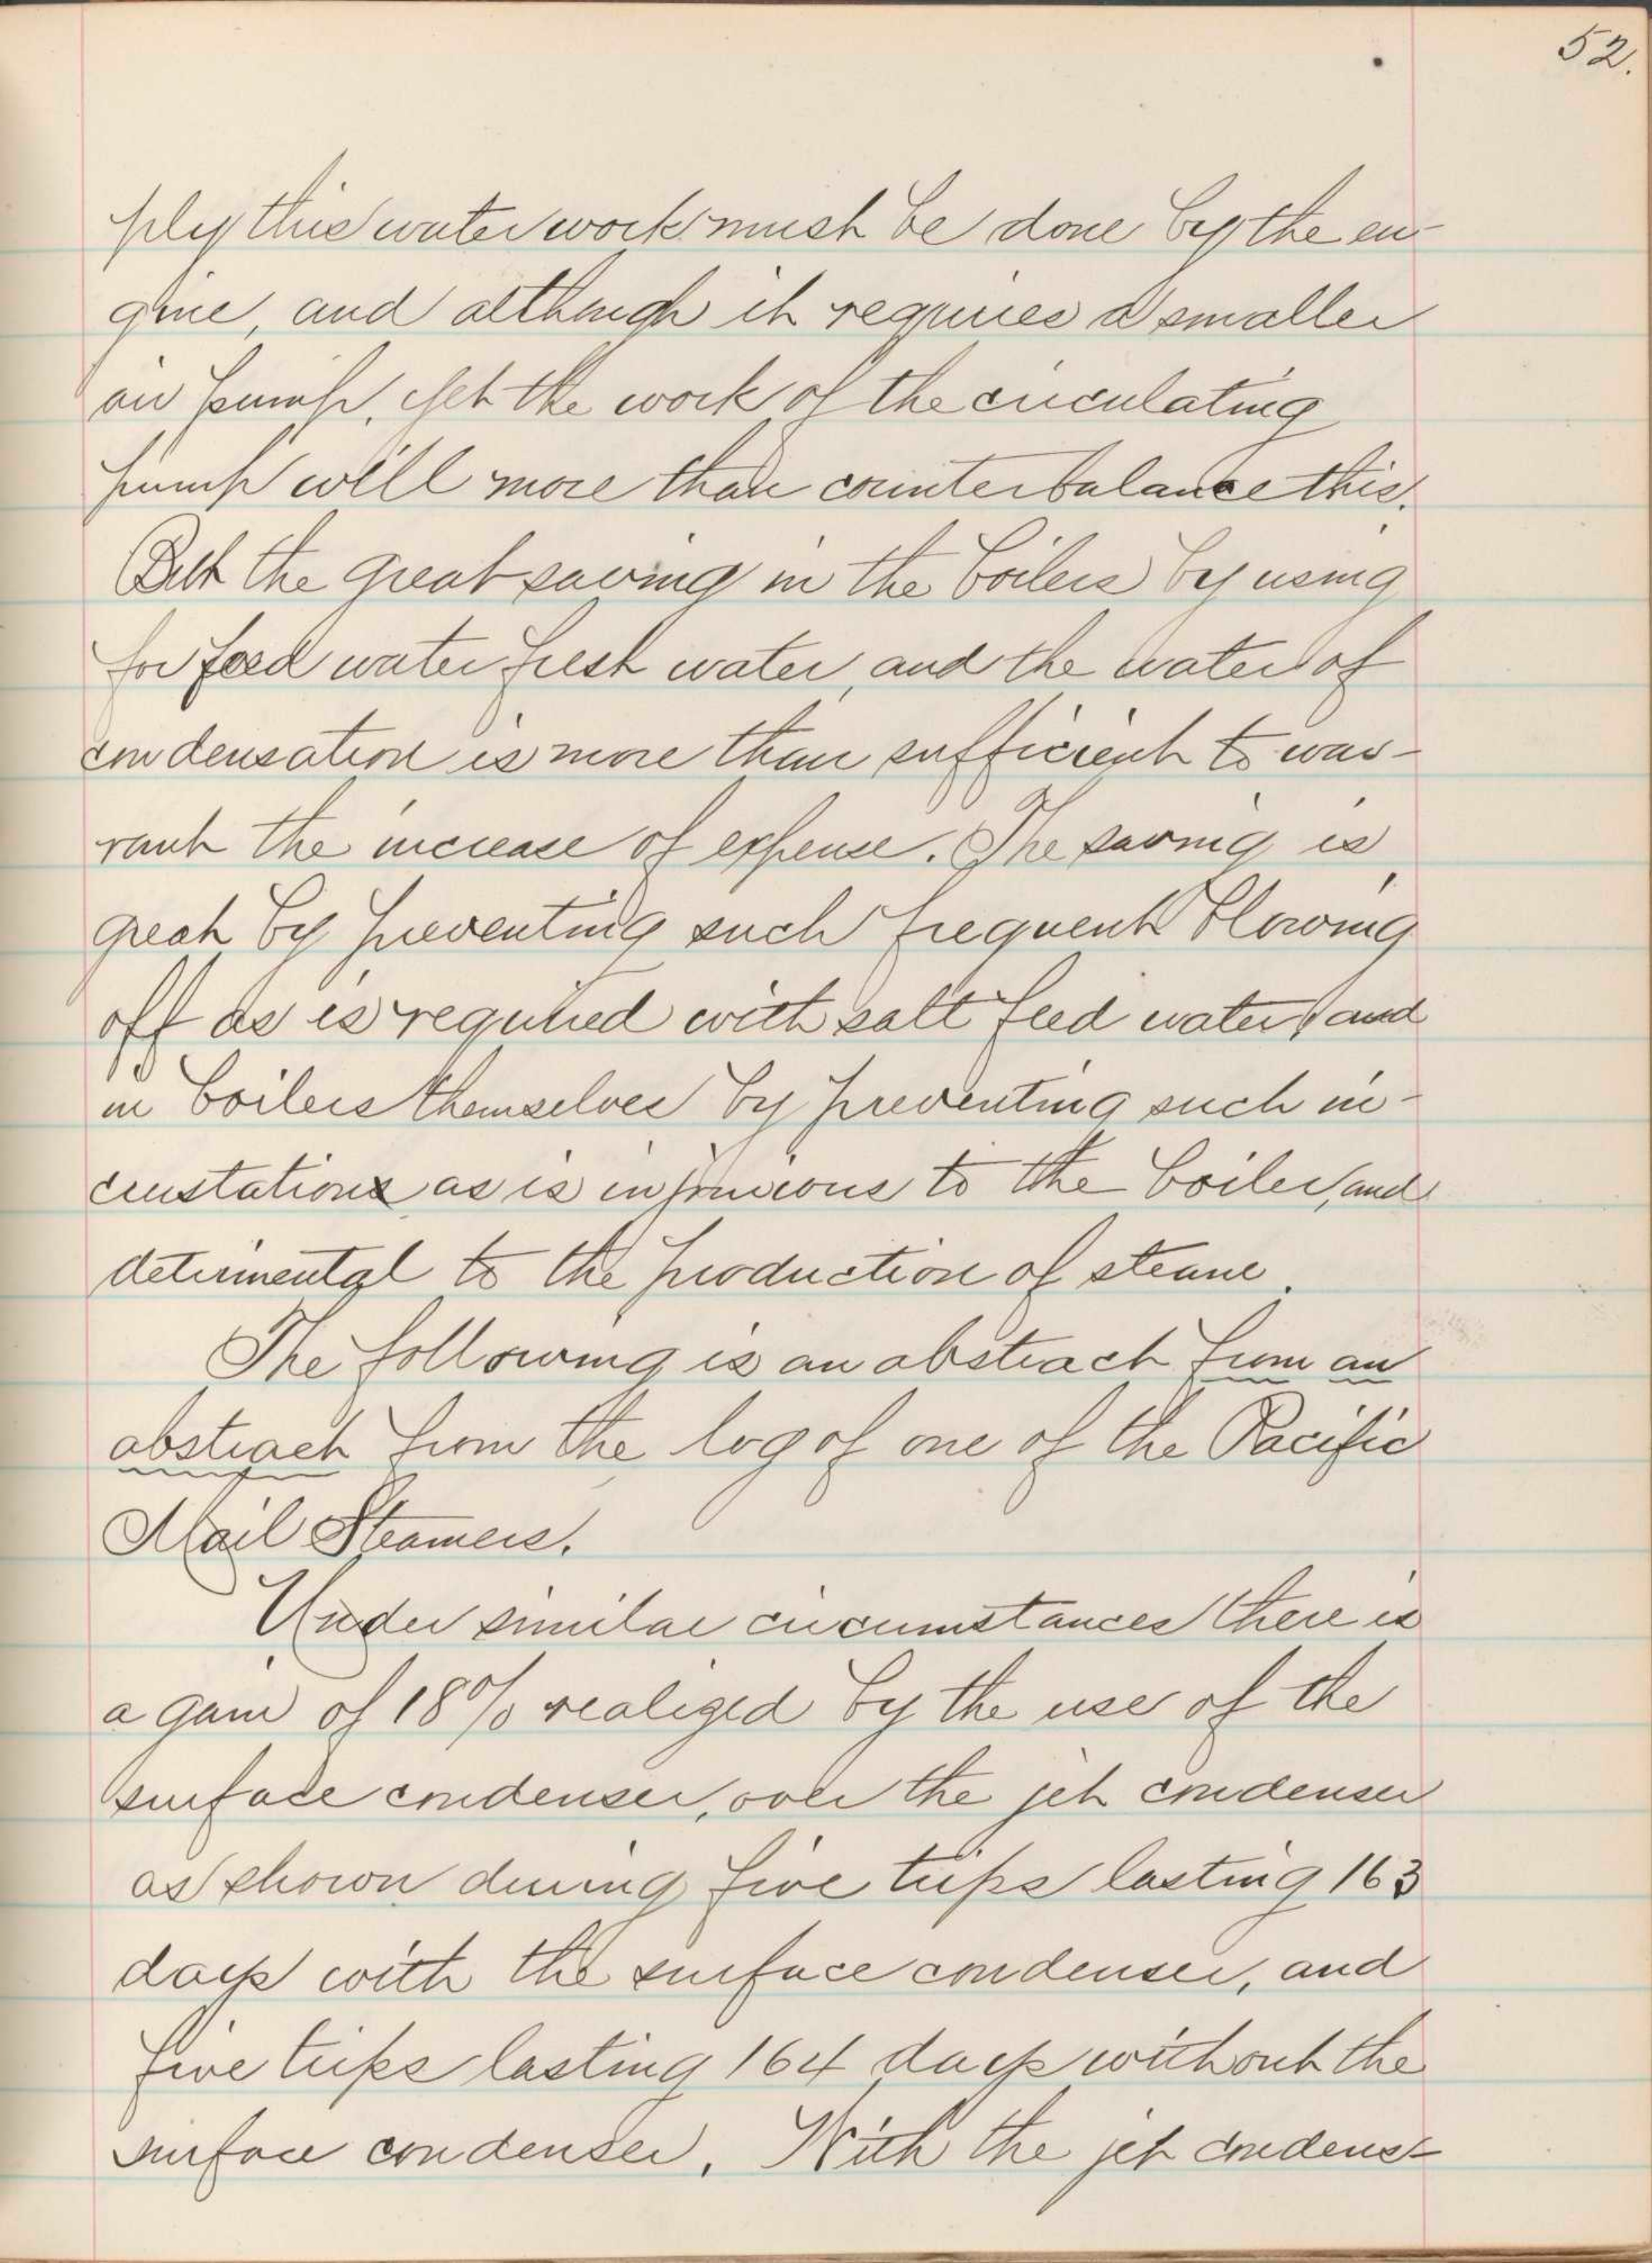 52.
ply this water work must be done by the en-
gine, and although it requires a smaller
air pump, yet the work of the circulating
pump will more than counterbalance this.
But the great saving in the boilers by using
for feed water fresh water, and the water of
condensation is more than sufficient to war-
rant the increase of expense. The saving is
great by preventing such frequent blowing
off as is required with salt feed water, and
in boilers themselves by preventing such in-
crustations as is injurious to the boiler, and
detrimental to the production of steam.
The following is an abstract from an
abstract from the log of one of the Pacific
Mail Steamers.
Under similar circumstances there is
a gain of 18% realized by the use of the
surface condenser, over the jet condenser
as shown during five trips lasting 163
days with the surface condenser, and
five trips lasting 164 days without the
surface condenser. With the jet condens-